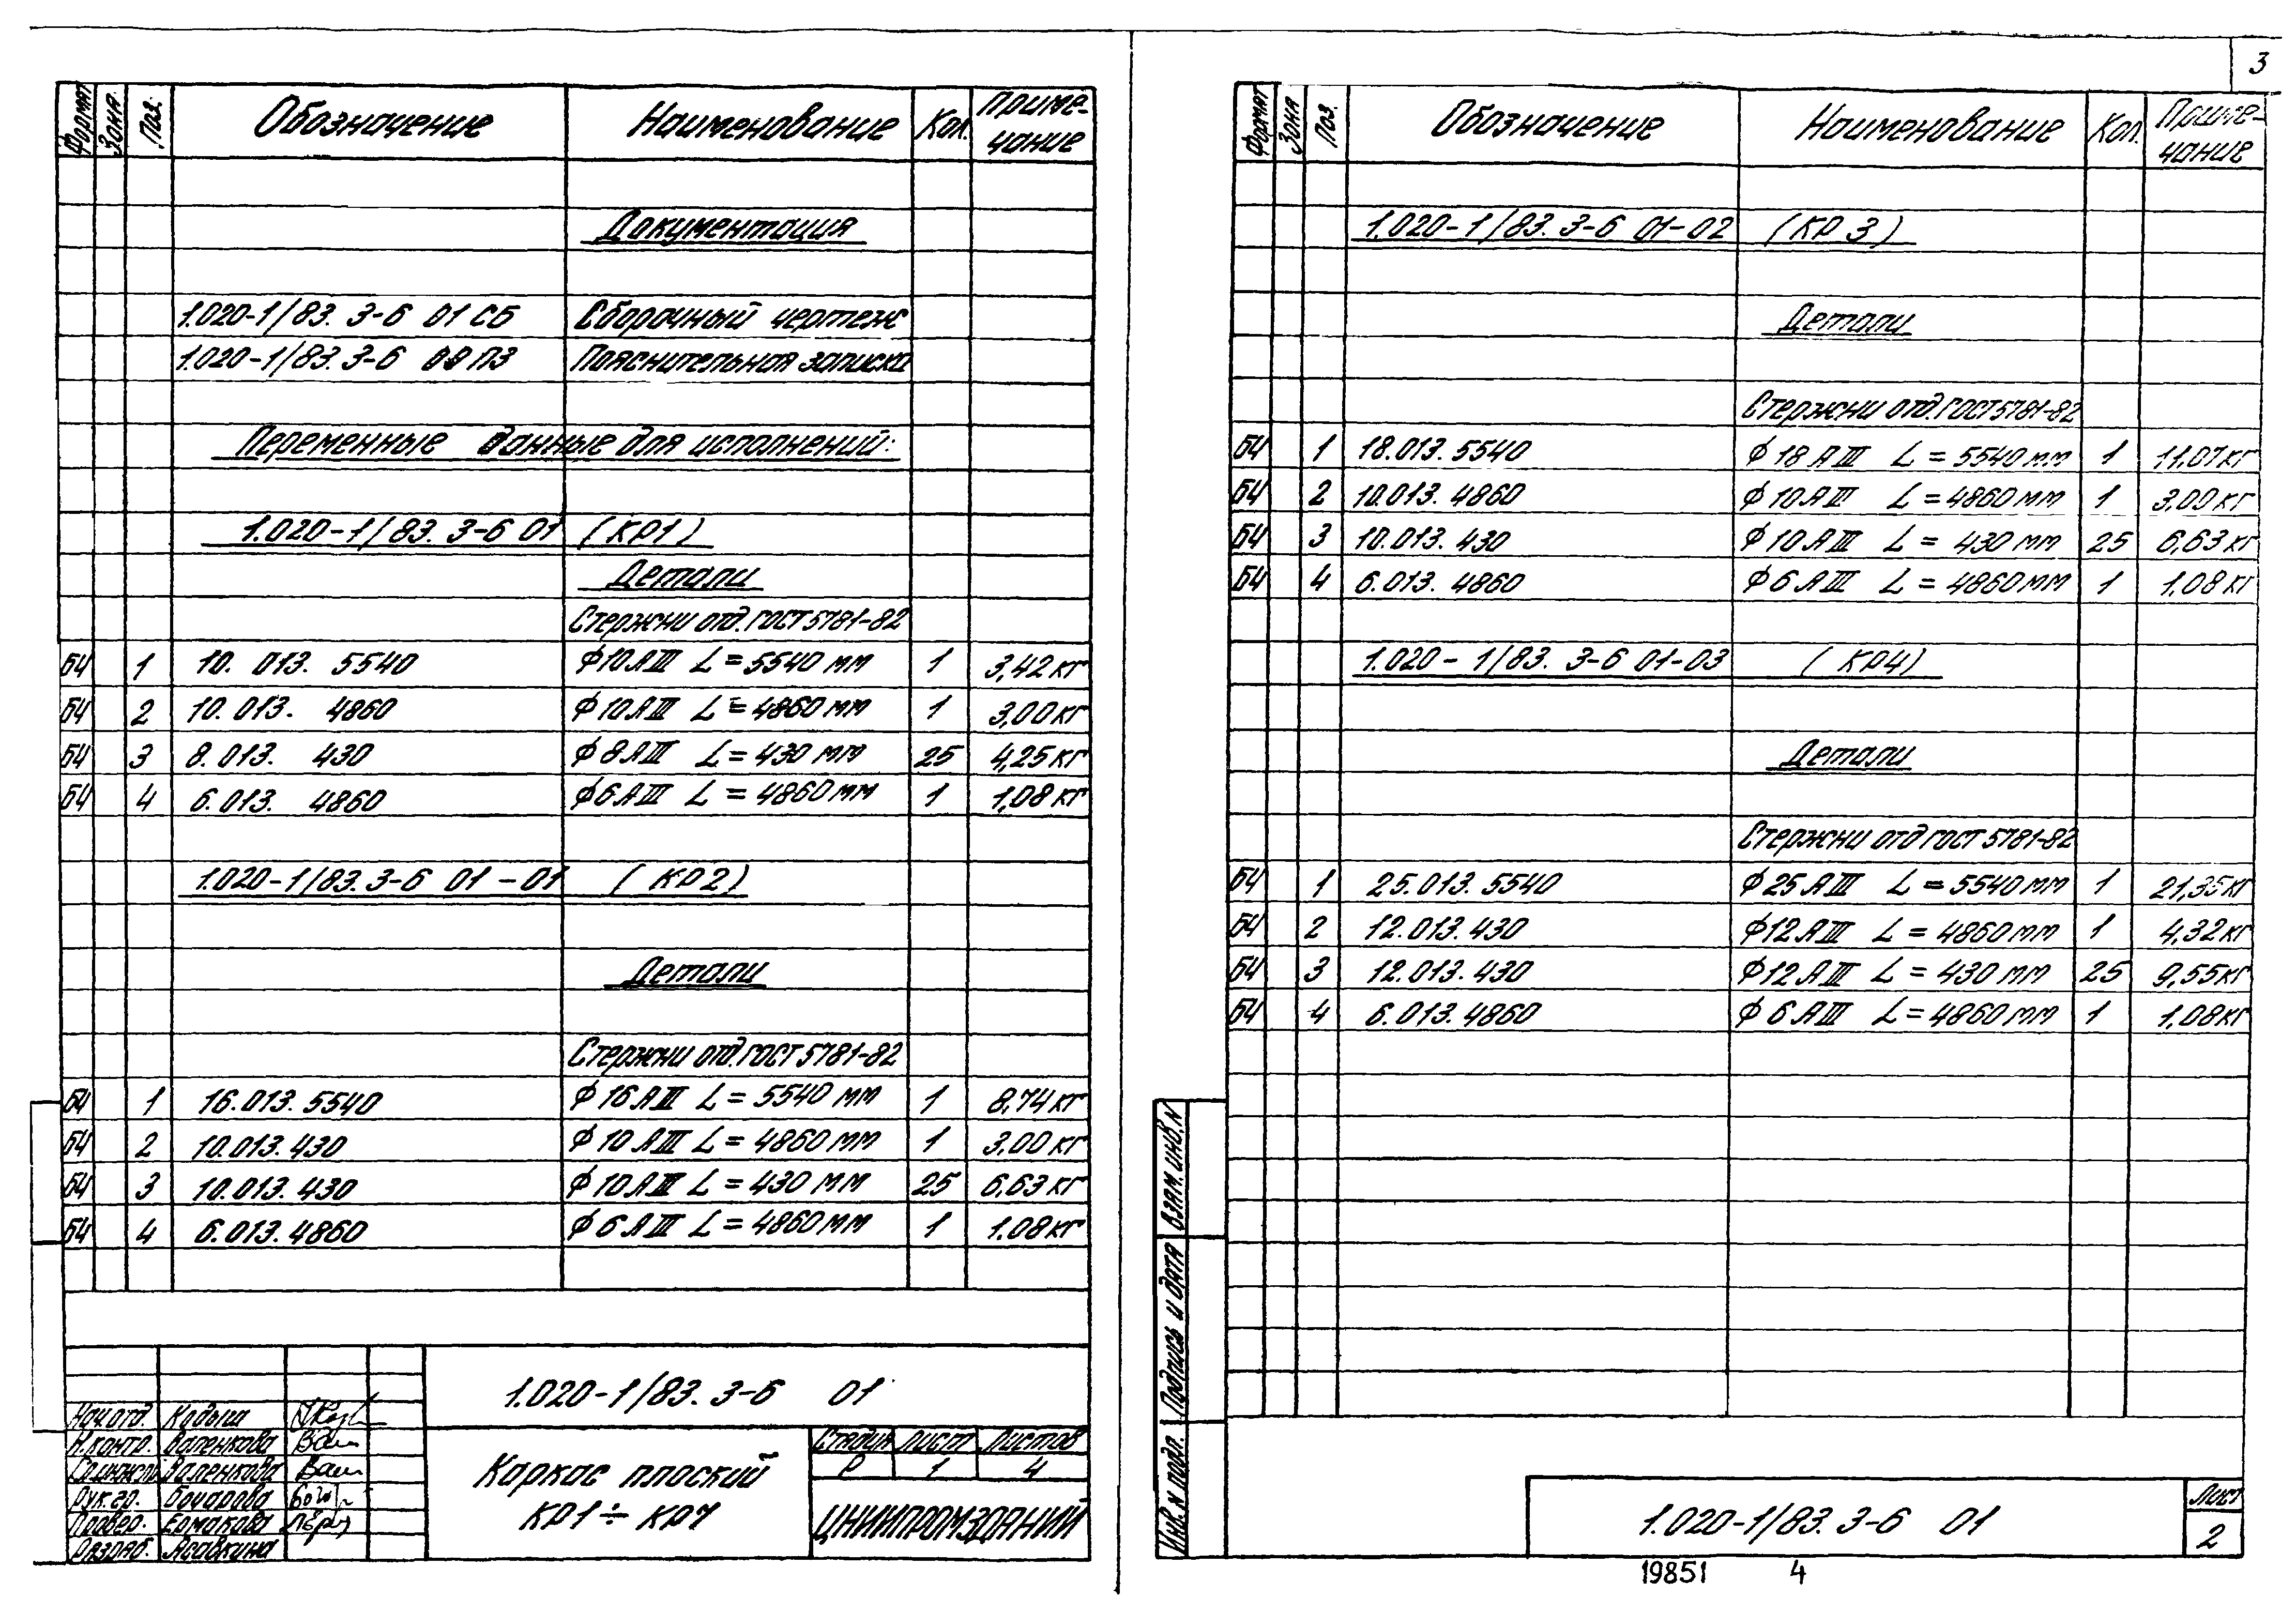 3
Формат Зона Поз. Обозначение Наименование Кол. Приме-
чание
Документация
1.020-1/83. 3-6 01 СБ Сборочный чертеж
1.020-1/83. 3-6 00 ПЗ Пояснительная записка
Переменные данные для исполнений:
1.020-1/83. 3-6 01 (КР1)
Детали
Стержни отд. ГОСТ 5781-82
БЧ 1 10. 013. 5540 Ф10АIII L=5540 мм 1 3,42 кг
БЧ 2 10. 013. 4860 Ф10АIII L=4860 мм 1 3,00 кг
БЧ 3 8. 013. 430 Ф8АIII L=430 мм 25 4,25 кг
БЧ 4 6. 013. 4860 Ф6АIII L=4860 мм 1 1,08 кг
1.020-1/83. 3-6 01-01 (КР2)
Детали
Стержни отд. ГОСТ 5781-82
БЧ 1 16.013.5540 Ф16АIII L=5540 мм 1 8,74 кг
БЧ 2 10.013.430 Ф10АIII L=4860 мм 1 3,00 кг
БЧ 3 10.013.430 Ф10АIII L=430 мм 25 6,63 кг
БЧ 4 6.013.4860 Ф6АIII L=4860 мм 1 1.08 кг
1.020-1/83. 3-6 01
Нач.отд. Кодыш
Н.контр. Валенкова
Валенкова
Рук.гр. Бочарова
Провер. Ермакова
Разраб. Асавкина
Каркас плоский
КР1÷КР7
Стадия Лист Листов
Р 1 4
ЦНИИПРОМЗДАНИЙ
Формат Зона Поз. Обозначение Наименование Кол. Приме-
чание
1.020-1/83. 3-6 01-02 (КР3)
Детали
Стержни отд. ГОСТ 5781-82
БЧ 1 18.013.5540 Ф18АIII L=5540 мм 1 11,07 кг
БЧ 2 10.013.4860 Ф10АIII L=4860 мм 1 3,00 кг
БЧ 3 10.013.430 Ф10АIII L=430 мм 25 6,63 кг
БЧ 4 6.013.4860 Ф6АIII L=4860 мм 1 1,08 кг
1.020-1/83. 3-6 01-03 (КР4)
Детали
Стержни отд ГОСТ 5781-82
БЧ 1 25.013.5540 Ф25АIII L=5540 мм 1 21,35 кг
БЧ 2 12.013.430 Ф12АIII L=4860 мм 1 4,32 кг
БЧ 3 12.013.430 Ф12АIII L=430 мм 25 9,55 кг
БЧ 4 6.013.4860 Ф6АIII L=4860 мм 1 1,08 кг
Взам. инв. N
Подпись и дата
Инв. N подл.
1.020-1/83. 3-6 01
Лист
2
19851 4